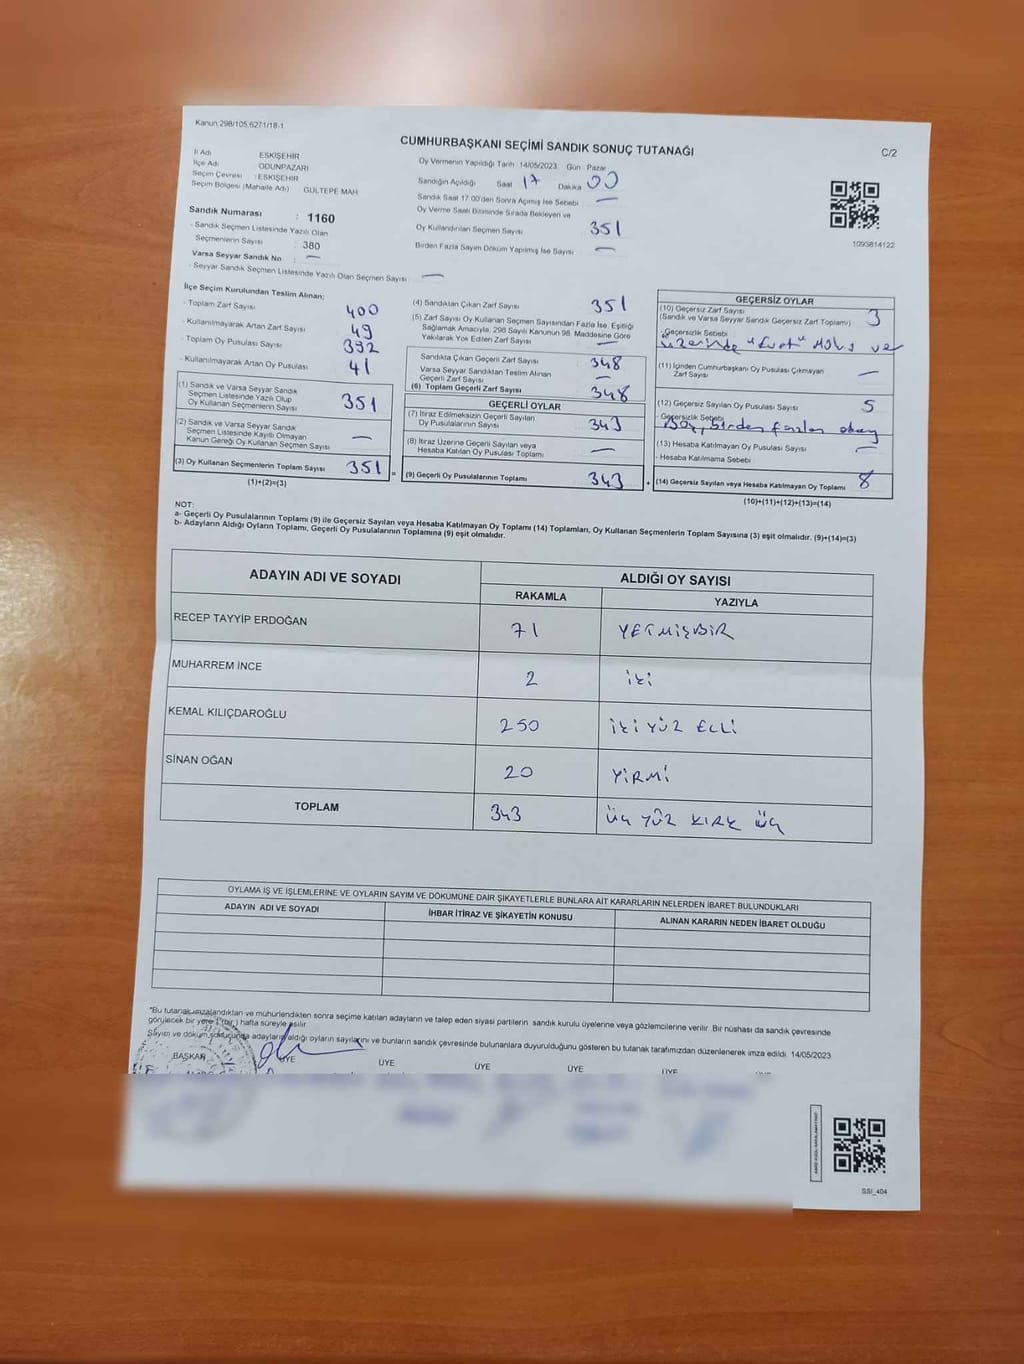 Kanun.298/105,6271/18-1
CUMHURBAŞKANI SEÇİMİ SANDIK SONUÇ TUTANAĞI
C/2
İl Adı ESKİŞEHİR
İlçe Adı ODUNPAZARI
Seçim Çevresi : ESKİŞEHİR
Seçim Bölgesi (Mahalle Adı) GÜLTEPE MAH
Oy Vermenin Yapıldığı Tarih :14/05/2023 Gün : Pazar
Sandığın Açıldığı Saat 17 Dakika 00
Sandık Saat 17.00'den Sonra Açılmış İse Sebebi —
Oy Verme Saati Bitiminde Sırada Bekleyen ve
Oy Kullandırılan Seçmen Sayısı 351
Birden Fazla Sayım Döküm Yapılmış İse Sayısı —
1093814122
Sandık Numarası : 1160
- Sandık Seçmen Listesinde Yazılı Olan
Seçmenlerin Sayısı : 380
Varsa Seyyar Sandık No : —
- Seyyar Sandık Seçmen Listesinde Yazılı Olan Seçmen Sayısı —
İlçe Seçim Kurulundan Teslim Alınan;
- Toplam Zarf Sayısı 400
- Kullanılmayarak Artan Zarf Sayısı 49
- Toplam Oy Pusulası Sayısı 392
- Kullanılmayarak Artan Oy Pusulası 41
(1) Sandık ve Varsa Seyyar Sandık
Seçmen Listesinde Yazılı Olup
Oy Kullanan Seçmenlerin Sayısı 351
(2) Sandık ve Varsa Seyyar Sandık
Seçmen Listesinde Kayıtlı Olmayan
Kanun Gereği Oy Kullanan Seçmen Sayısı —
(3) Oy Kullanan Seçmenlerin Toplam Sayısı 351
(1)+(2)=(3)
(4) Sandıktan Çıkan Zarf Sayısı 351
(5) Zarf Sayısı Oy Kullanan Seçmen Sayısından Fazla İse, Eşitliği
Sağlamak Amacıyla, 298 Sayılı Kanunun 98. Maddesine Göre
Yakılarak Yok Edilen Zarf Sayısı —
Sandıkta Çıkan Geçerli Zarf Sayısı 348
Varsa Seyyar Sandıktan Teslim Alınan
Geçerli Zarf Sayısı —
(6) Toplam Geçerli Zarf Sayısı 348
GEÇERLİ OYLAR
(7) İtiraz Edilmeksizin Geçerli Sayılan
Oy Pusulalarının Sayısı 343
(8) İtiraz Üzerine Geçerli Sayılan veya
Hesaba Katılan Oy Pusulası Toplamı —
(9) Geçerli Oy Pusulalarının Toplamı 343
GEÇERSİZ OYLAR
(10) Geçersiz Zarf Sayısı 3
(Sandık ve Varsa Seyyar Sandık Geçersiz Zarf Toplamı)
- Geçersizlik Sebebi
üzerinde "Evet" Mührü var
(11) İçinden Cumhurbaşkanı Oy Pusulası Çıkmayan
Zarf Sayısı —
(12) Geçersiz Sayılan Oy Pusulası Sayısı 5
- Geçersizlik Sebebi
Boş, birden fazla
(13) Hesaba Katılmayan Oy Pusulası Sayısı —
- Hesaba Katılmama Sebebi
(14) Geçersiz Sayılan veya Hesaba Katılmayan Oy Toplamı 8
(10)+(11)+(12)+(13)=(14)
NOT:
a- Geçerli Oy Pusulalarının Toplamı (9) ile Geçersiz Sayılan veya Hesaba Katılmayan Oy Toplamı (14) Toplamları, Oy Kullanan Seçmenlerin Toplam Sayısına (3) eşit olmalıdır. (9)+(14)=(3)
b- Adayların Aldığı Oyların Toplamı, Geçerli Oy Pusulalarının Toplamına (9) eşit olmalıdır.
ADAYIN ADI VE SOYADI ALDIĞI OY SAYISI
RAKAMLA YAZIYLA
RECEP TAYYİP ERDOĞAN 71 YETMİŞBİR
MUHARREM İNCE 2 İKİ
KEMAL KILIÇDAROĞLU 250 İKİ YÜZ ELLİ
SİNAN OĞAN 20 YİRMİ
TOPLAM 343 ÜÇ YÜZ KIRK ÜÇ
OYLAMA İŞ VE İŞLEMLERİNE VE OYLARIN SAYIM VE DÖKÜMÜNE DAİR ŞİKAYETLERLE BUNLARA AİT KARARLARIN NELERDEN İBARET BULUNDUKLARI
ADAYIN ADI VE SOYADI İHBAR İTİRAZ VE ŞİKAYETİN KONUSU ALINAN KARARIN NEDEN İBARET OLDUĞU
*Bu tutanak imzalandıktan ve mühürlendikten sonra seçime katılan adayların ve talep eden siyasi partilerin sandık kurulu üyelerine veya gözlemcilerine verilir. Bir nüshası da sandık çevresinde
görülecek bir yere 1 (bir) hafta süreyle asılır.
Sayım ve döküm sonucunda adayların aldığı oyların sayılarını ve bunların sandık çevresinde bulunanlara duyurulduğunu gösteren bu tutanak tarafımızdan düzenlenerek imza edildi. 14/05/2023
BAŞKAN ÜYE ÜYE ÜYE ÜYE ÜYE
SSI_404